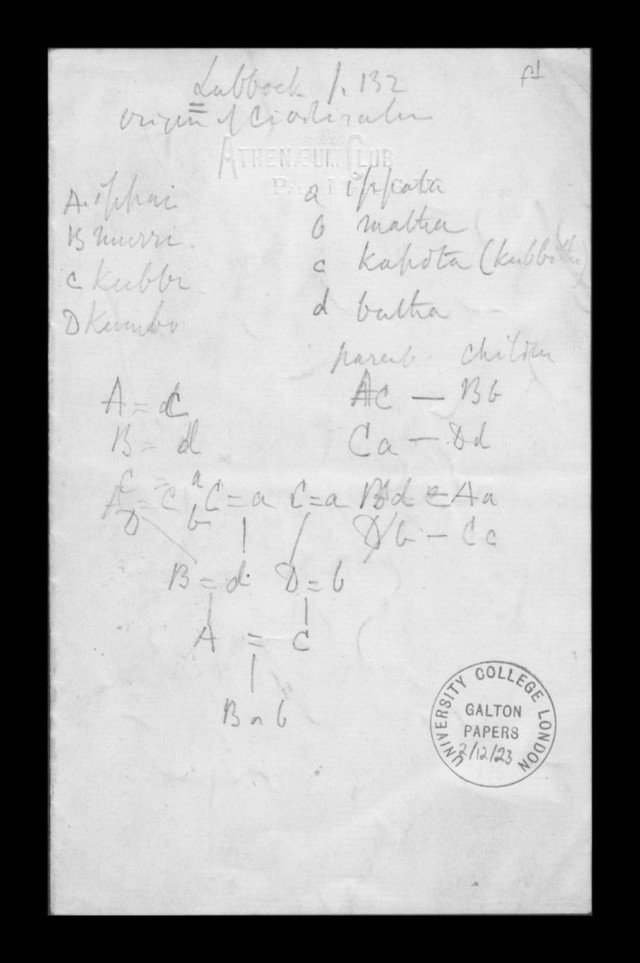 Lubbock p. 132
A1
origin of Civilization
ATHENÆUM CLUB
A. ippai   a ippata
B murri.   b matha
C kubbi   c kapota (kubbitha)
D Kumbo   d butha
parent   children
A = c   Ac — Bb
B = d   Ca — Dd
C = a
A = C   C = a   C = a   Bd = Aa
D   b   Db — Cc
B = d.   D = b
A = C
B or b
UNIVERSITY COLLEGE LONDON
GALTON
PAPERS
2/12/23